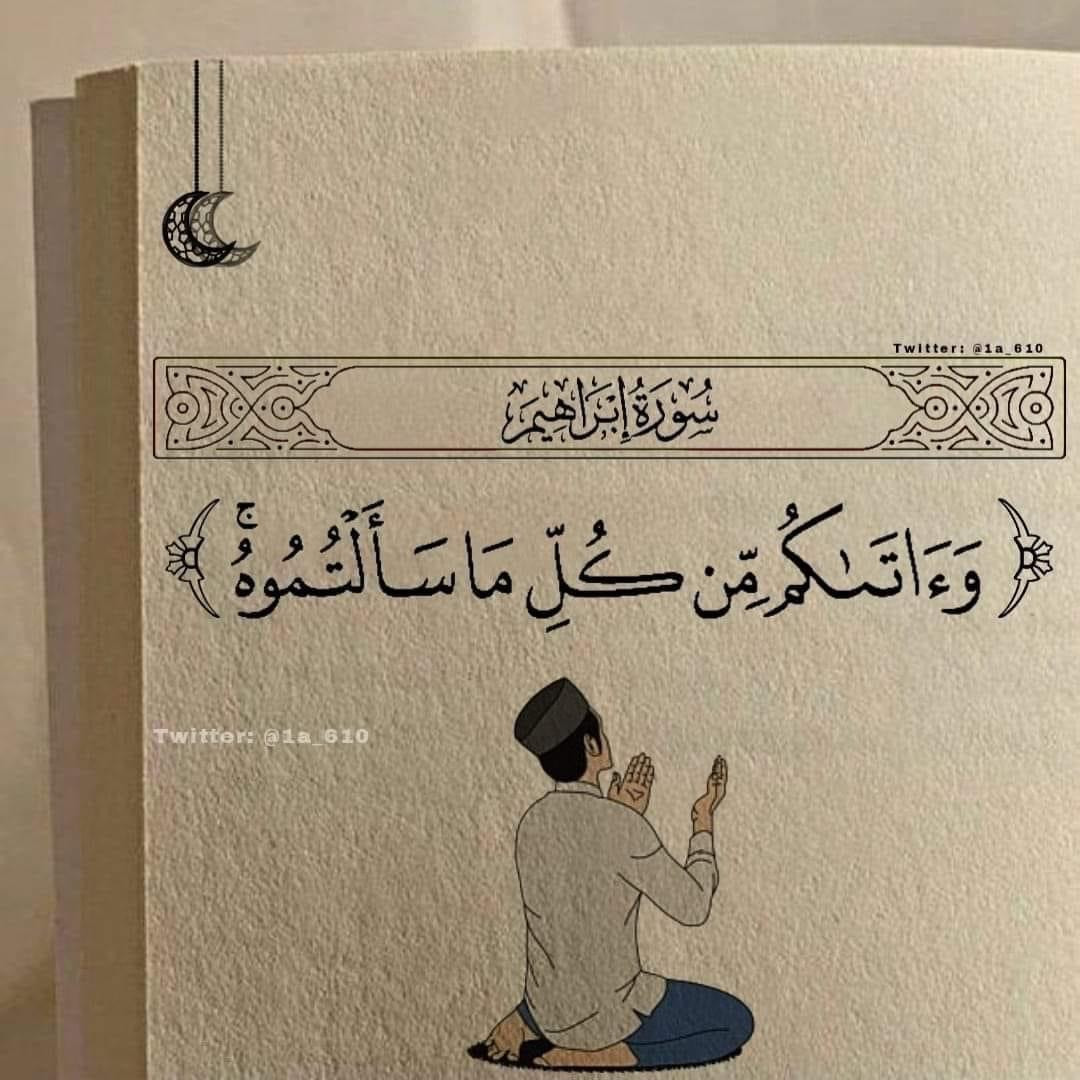 Twitter: @1a_610
سُورَةُ إِبْرَاهِيمَ
﴿ وَءَاتَىٰكُم مِّن كُلِّ مَا سَأَلْتُمُوهُۚ ﴾
Twitter: @1a_610